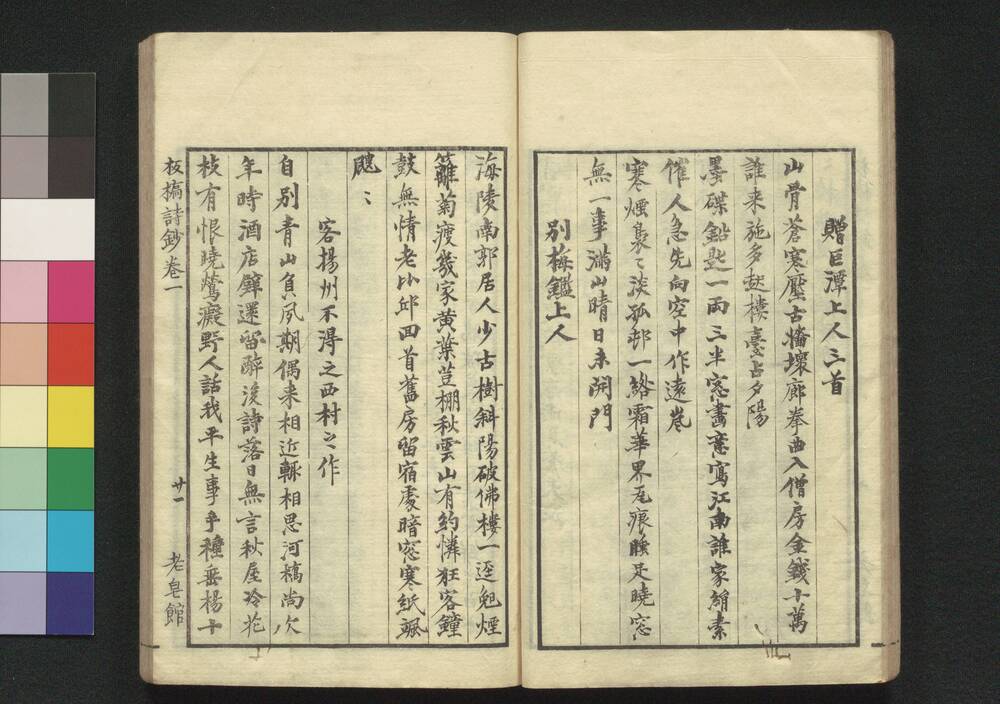 贈巨潭上人三首
山骨蒼寒壓古墻壞廊拳曲入僧房金錢十萬
誰来施多趁樓臺占夕陽
墨碟鉛匙一兩三半窓畫意寫江南誰家絹素
催人急先向空中作遠嵐
寒煙裊〻淡孤邨一絡霜華界瓦痕睡足曉窓
無一事滿山晴日未開門
別梅鑑上人
海陵南郭居人少古樹斜陽破佛樓一逕晩煙
籬菊瘦幾家黄葉荳棚秋雲山有約憐狂客鐘
鼓無情老比邱回首舊房留宿處暗窓寒紙颯
颼〻
客揚州不得之西村之作
自別青山負夙期偶来相近輒相思河橋尚欠
年時酒店壁還留醉後詩落日無言秋屋冷花
枝有恨曉鶯癡野人話我平生事手種垂楊十
板橋詩鈔卷一
廿一
老皂館